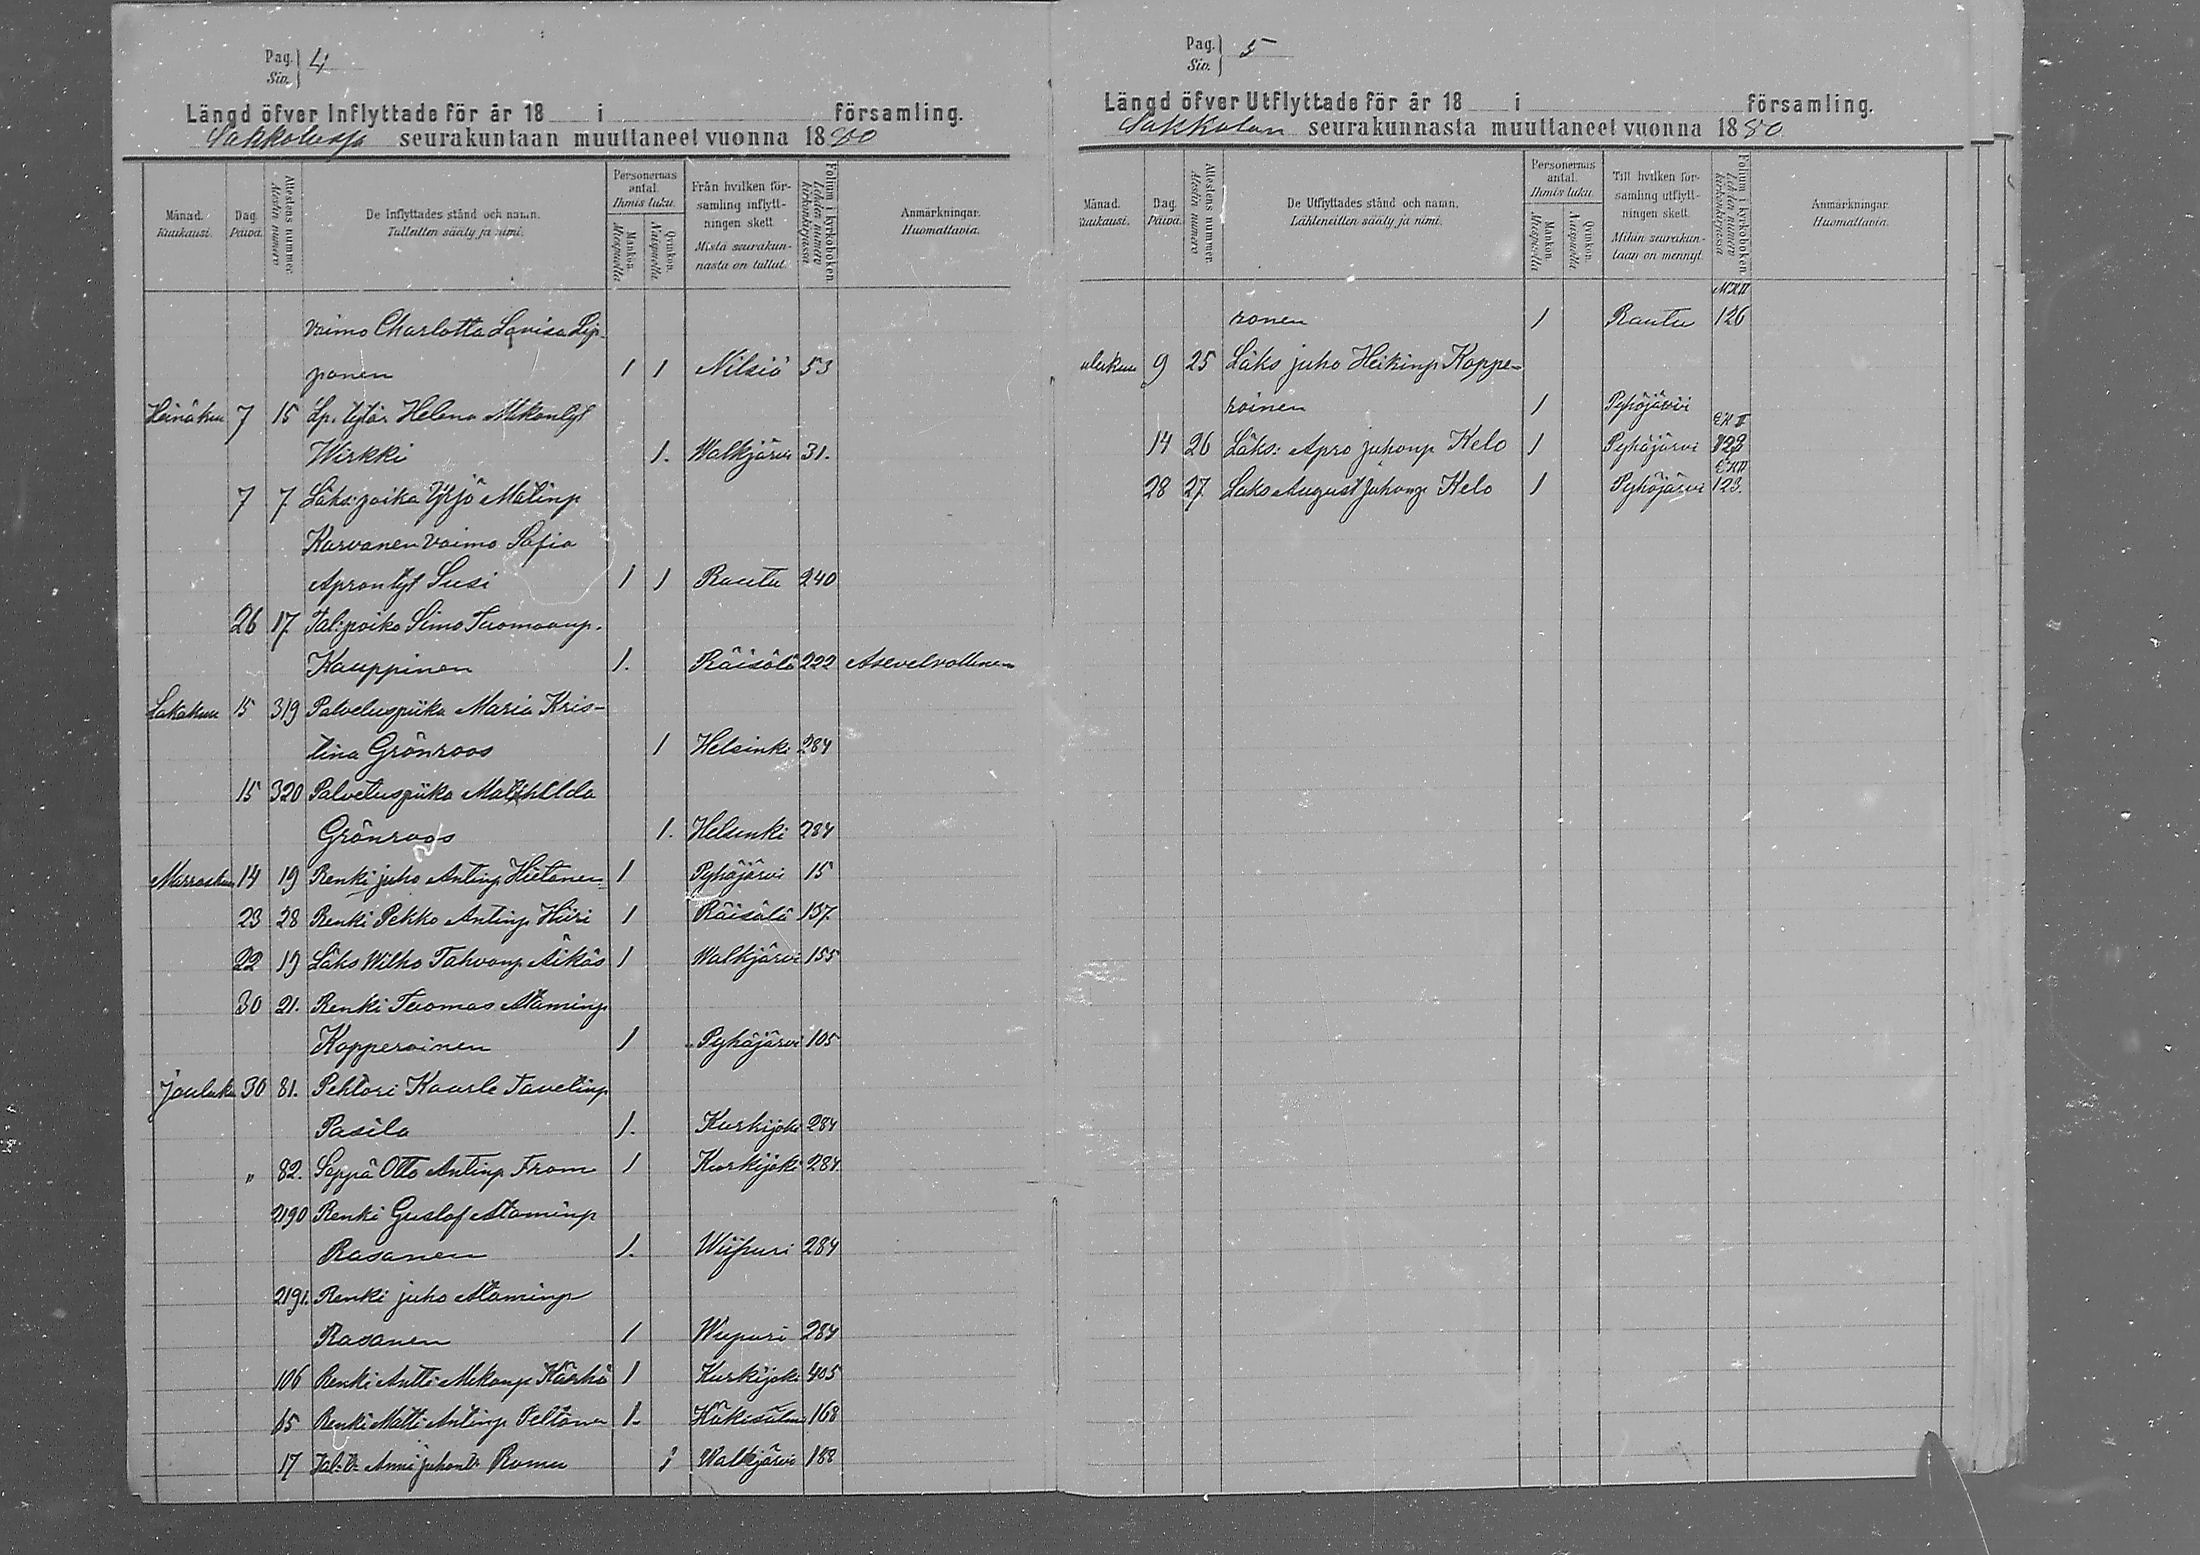 Pag. 4
Siv.
Längd öfver Inflyttade för år 18 i församling.
seurakuntaan muuttaneet vuonna 1880
Månad. Kuukausi.
Dag. Päivä.
Attestens nummer. Atestin numero
De Inflyttades stånd och namn.
Tulleitten sääty ja nimi.
Personernas antal. Ihmis luku.
Mankön. Miespuolia
Qvinkön. Naispuolia
Från hvilken församling inflyttningen skett.
Mistä seurakunnasta on tullut.
Folium i kyrkoboken
Lehden numero kirkonkirjassa
Anmärkningar.
Huomattavia.
vaimo Charlotta Lovisa Lip-
ponen 1 1 Nilsiö 53
Heinäkuu 7 15 Lp. tytär Helena Mikontyt
Wirkki 1. Walkjärvi 31.
7 7. Läks: poika Yrjö Matinp.
Karvanen vaimo Sofia
Aprontyt Susi 1 1 Rautu 240
26 17. Tal: poika Simo Tuomaanp.
Kauppinen 1. Räisälä 222 Asevelvollinen
Lokakuu 15 319 Palveluspiika Maria Kris-
tina Grönroos 1 Helsinki 284
15 320 Palveluspiika Mathilda
Grönroos 1. Helsinki 284
Marraskuu 14 19 Renki juho Antinp. Hietanen 1 Pyhäjärvi 15
23 28 Renki Pekko Antinp. Hiiri 1 Räisälä 137.
22 19 Läks Wilho Tahvonp. Äikäs 1 Walkjärvi 155
30 21. Renki Tuomas Ataminp
Kopperoinen 1 Pyhäjärvi 105
Jouluku 30 81. Pehtori Kaarle Taavetinp
Pasila 1. Kurkijoki 284
" 82. Seppä Otto Antinp. From 1 Kurkijoki 284.
2190 Renki Gustaf Ataminp
Rasanen 1. Wiipuri 284
2191. Renki juho Ataminp
Rasanen 1 Wiipuri 284
106 Renki Antti Mikonp. Kärhä 1 Kurkijoki 405
65 Renki Matti Antinp. Peltonen 1. Käkisalmi 168
17 Tal: tr. Anni juhontr. Romu 1 Walkjärvi 188
Pag. 5
Siv.
Längd öfver Utflyttade för år 18 i församling.
Sakkolan seurakunnasta muuttaneet vuonna 1880
Månad. Kuukausi.
Dag. Päivä.
Attestens nummer. Atestin numero
De Utflyttades stånd och namn.
Lähteneitten sääty ja nimi.
Personernas antal. Ihmis luku.
Mankön. Miespuolia
Qvinkön. Naispuolia
Till hvilken församling utflyttningen skett.
Mihin seurakuntaan on mennyt.
Folium i kyrkoboken
Lehden numero kirkonkirjassa
Anmärkningar.
Huomattavia.
ronen 1 Rautu 126
9 25 Läks juho Heikinp. Koppe-
roinen 1 Pyhäjärvi
14 26 Läks: Apro juhonp Kelo 1 Pyhäjärvi
28 27. Läks August juhonp Kelo 1 Pyhäjärvi 123.